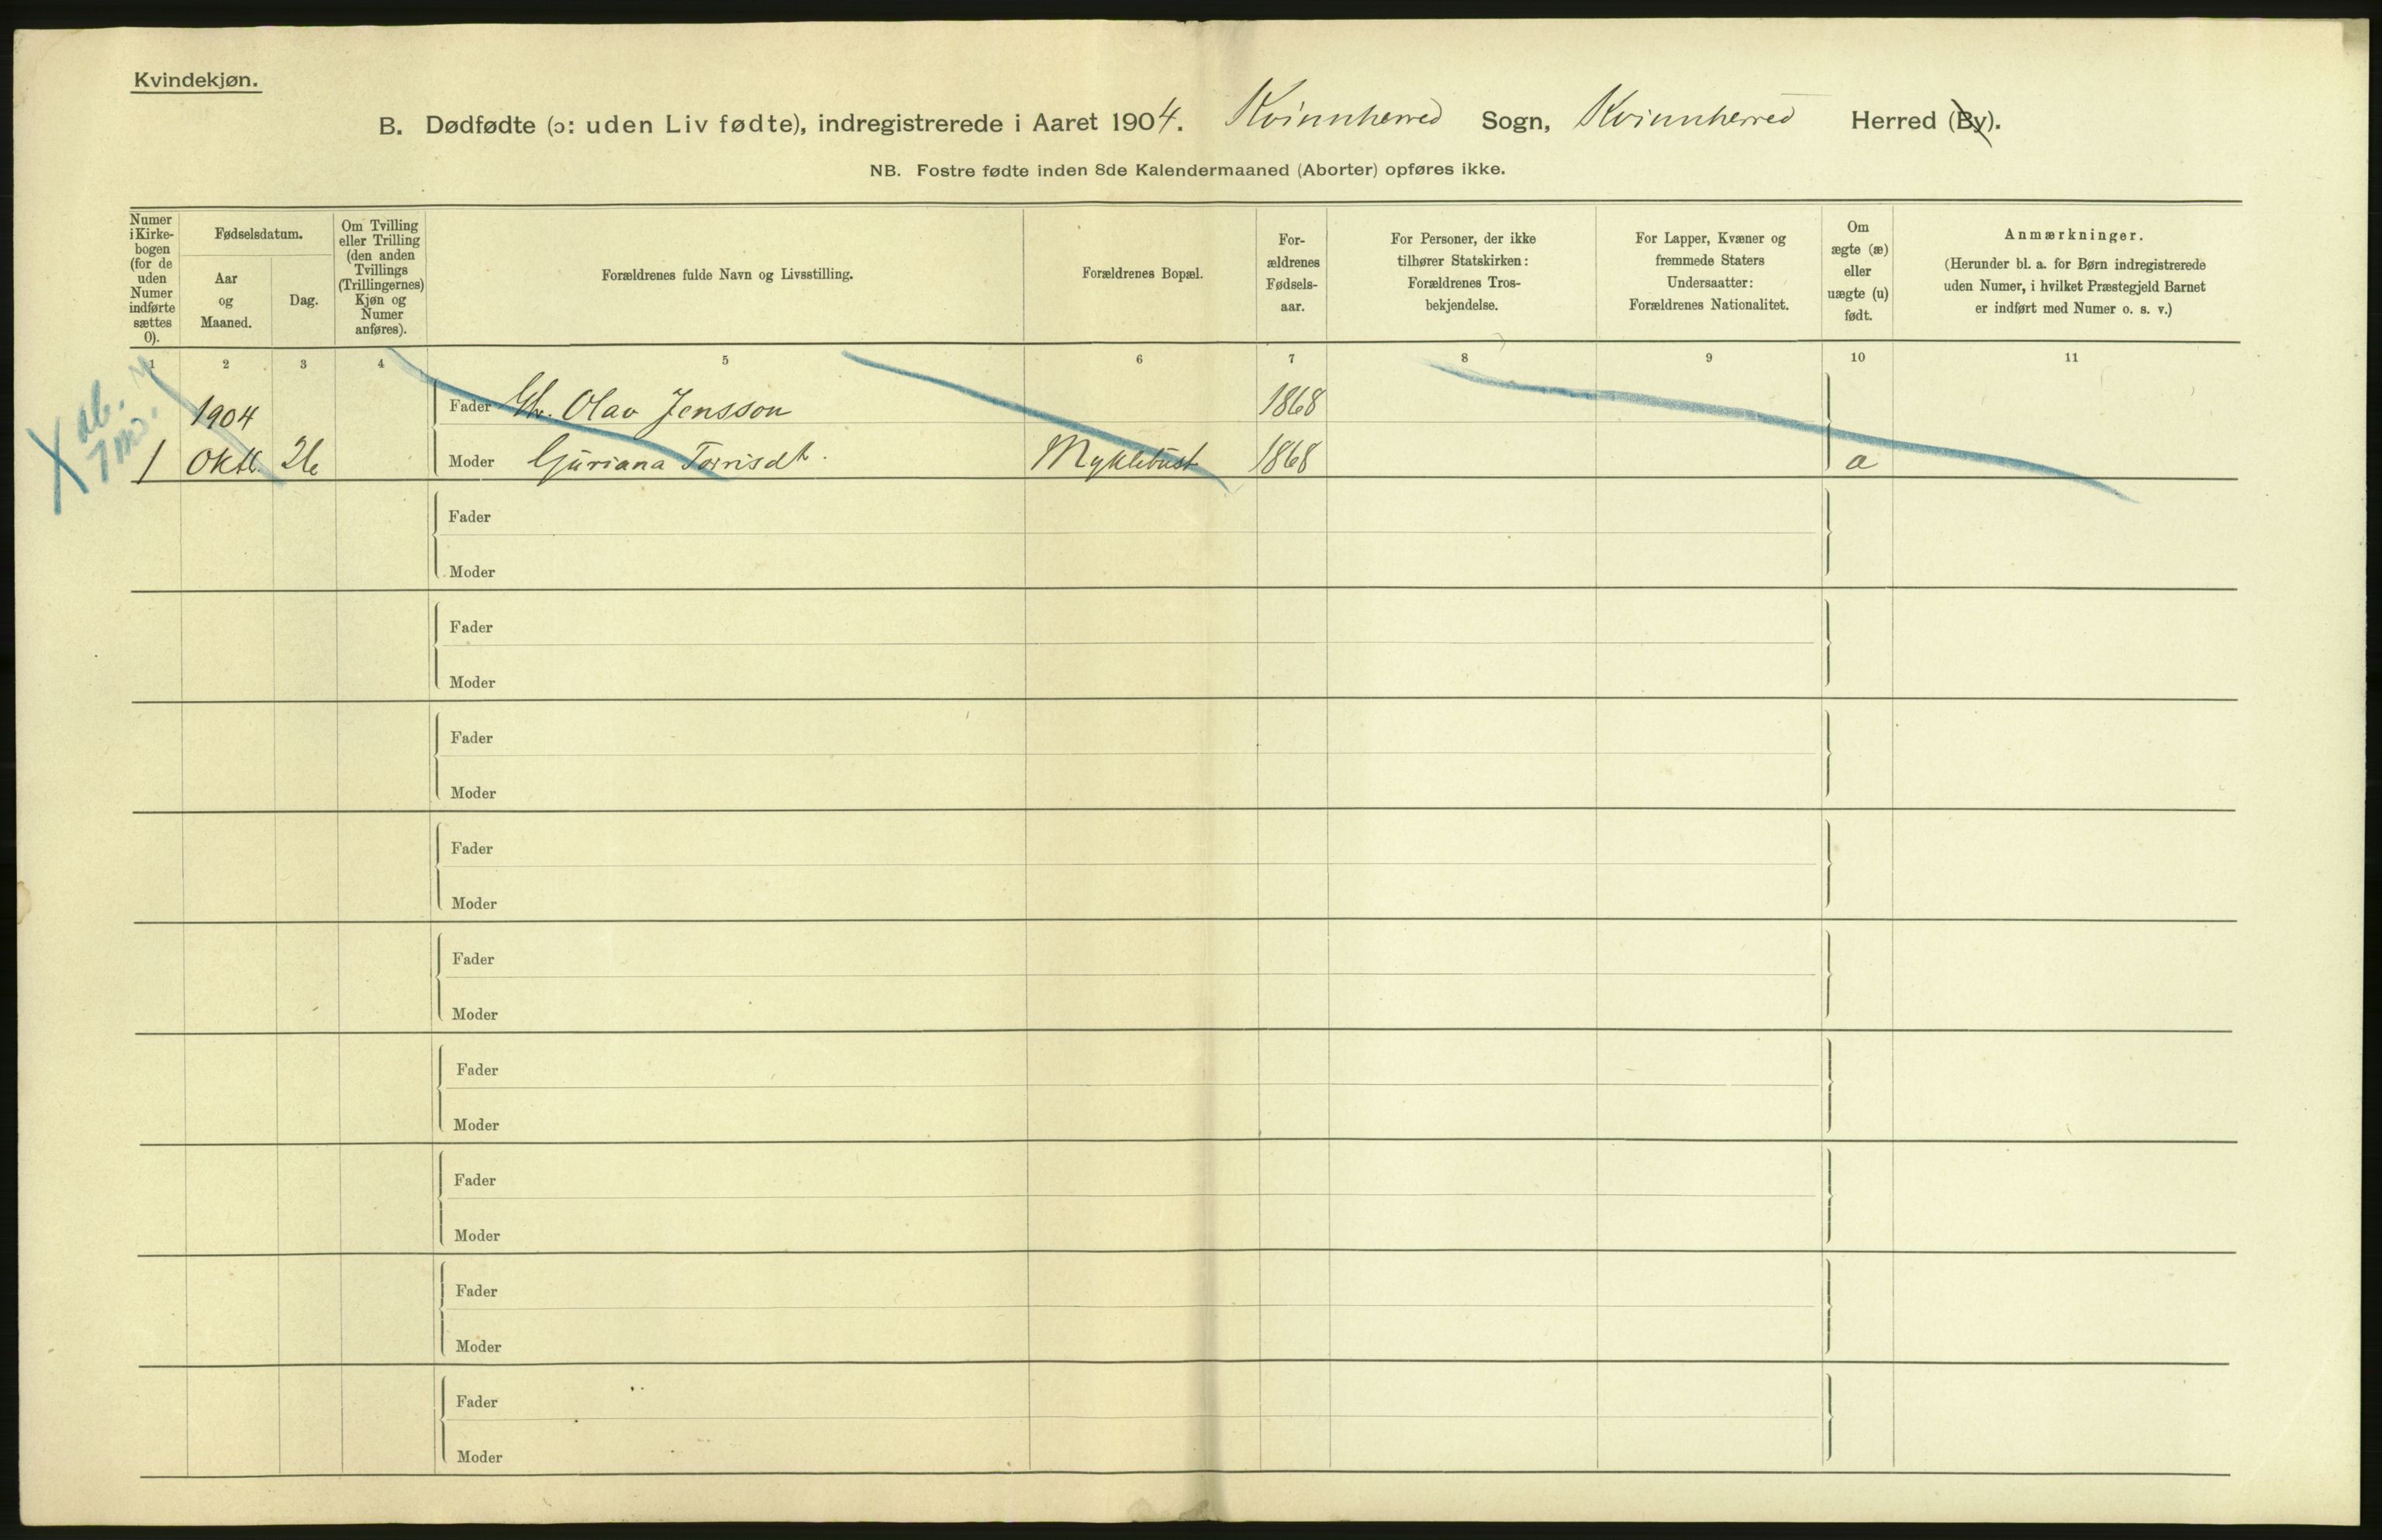 Kvindekjøn.
B. Dødfødte (ɔ: uden Liv fødte), indregistrerede i Aaret 1904. Kvinnherred Sogn, Kvinnherred Herred (By).
NB. Fostre fødte inden 8de Kalendermaaned (Aborter) opføres ikke.
Numer
i Kirke-
bogen
(for de
uden
Numer
indførte
sættes
0).
Fødselsdatum.
Aar
og
Maaned.
Dag.
Om Tvilling
eller Trilling
(den anden
Tvillings
(Trillingernes)
Kjøn og
Numer
anføres).
Forældrenes fulde Navn og Livsstilling.
Forældrenes Bopæl.
For-
ældrenes
Fødsels-
aar.
For Personer, der ikke
tilhører Statskirken:
Forældrenes Tros-
bekjendelse.
For Lapper, Kvæner og
fremmede Staters
Undersaatter:
Forældrenes Nationalitet.
Om
ægte (æ)
eller
uægte (u)
født.
Anmærkninger.
(Herunder bl. a. for Børn indregistrerede
uden Numer, i hvilket Præstegjeld Barnet
er indført med Numer o. s. v.)
1 2 3 4 5 6 7 8 9 10 11
X ab.
7 md.
1904 Fader Olav Jensson 1868
1 Oktb. 26 Moder Guriana Torrisdt. Myklebust 1868 æ
Fader
Moder
Fader
Moder
Fader
Moder
Fader
Moder
Fader
Moder
Fader
Moder
Fader
Moder
Fader
Moder
Fader
Moder